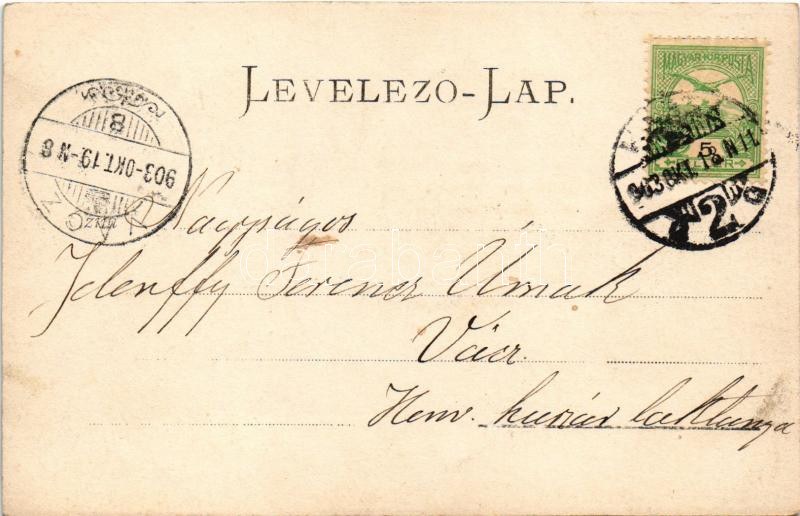 LEVELEZŐ-LAP.
MAGYAR KIR. POSTA
5
903 OKT. 18 N 11
2
903-OKT. 19-N 8
8
Nagyságos
Jelenffy Ferencz Urnak
Vácz
Honv. huszár laktanya